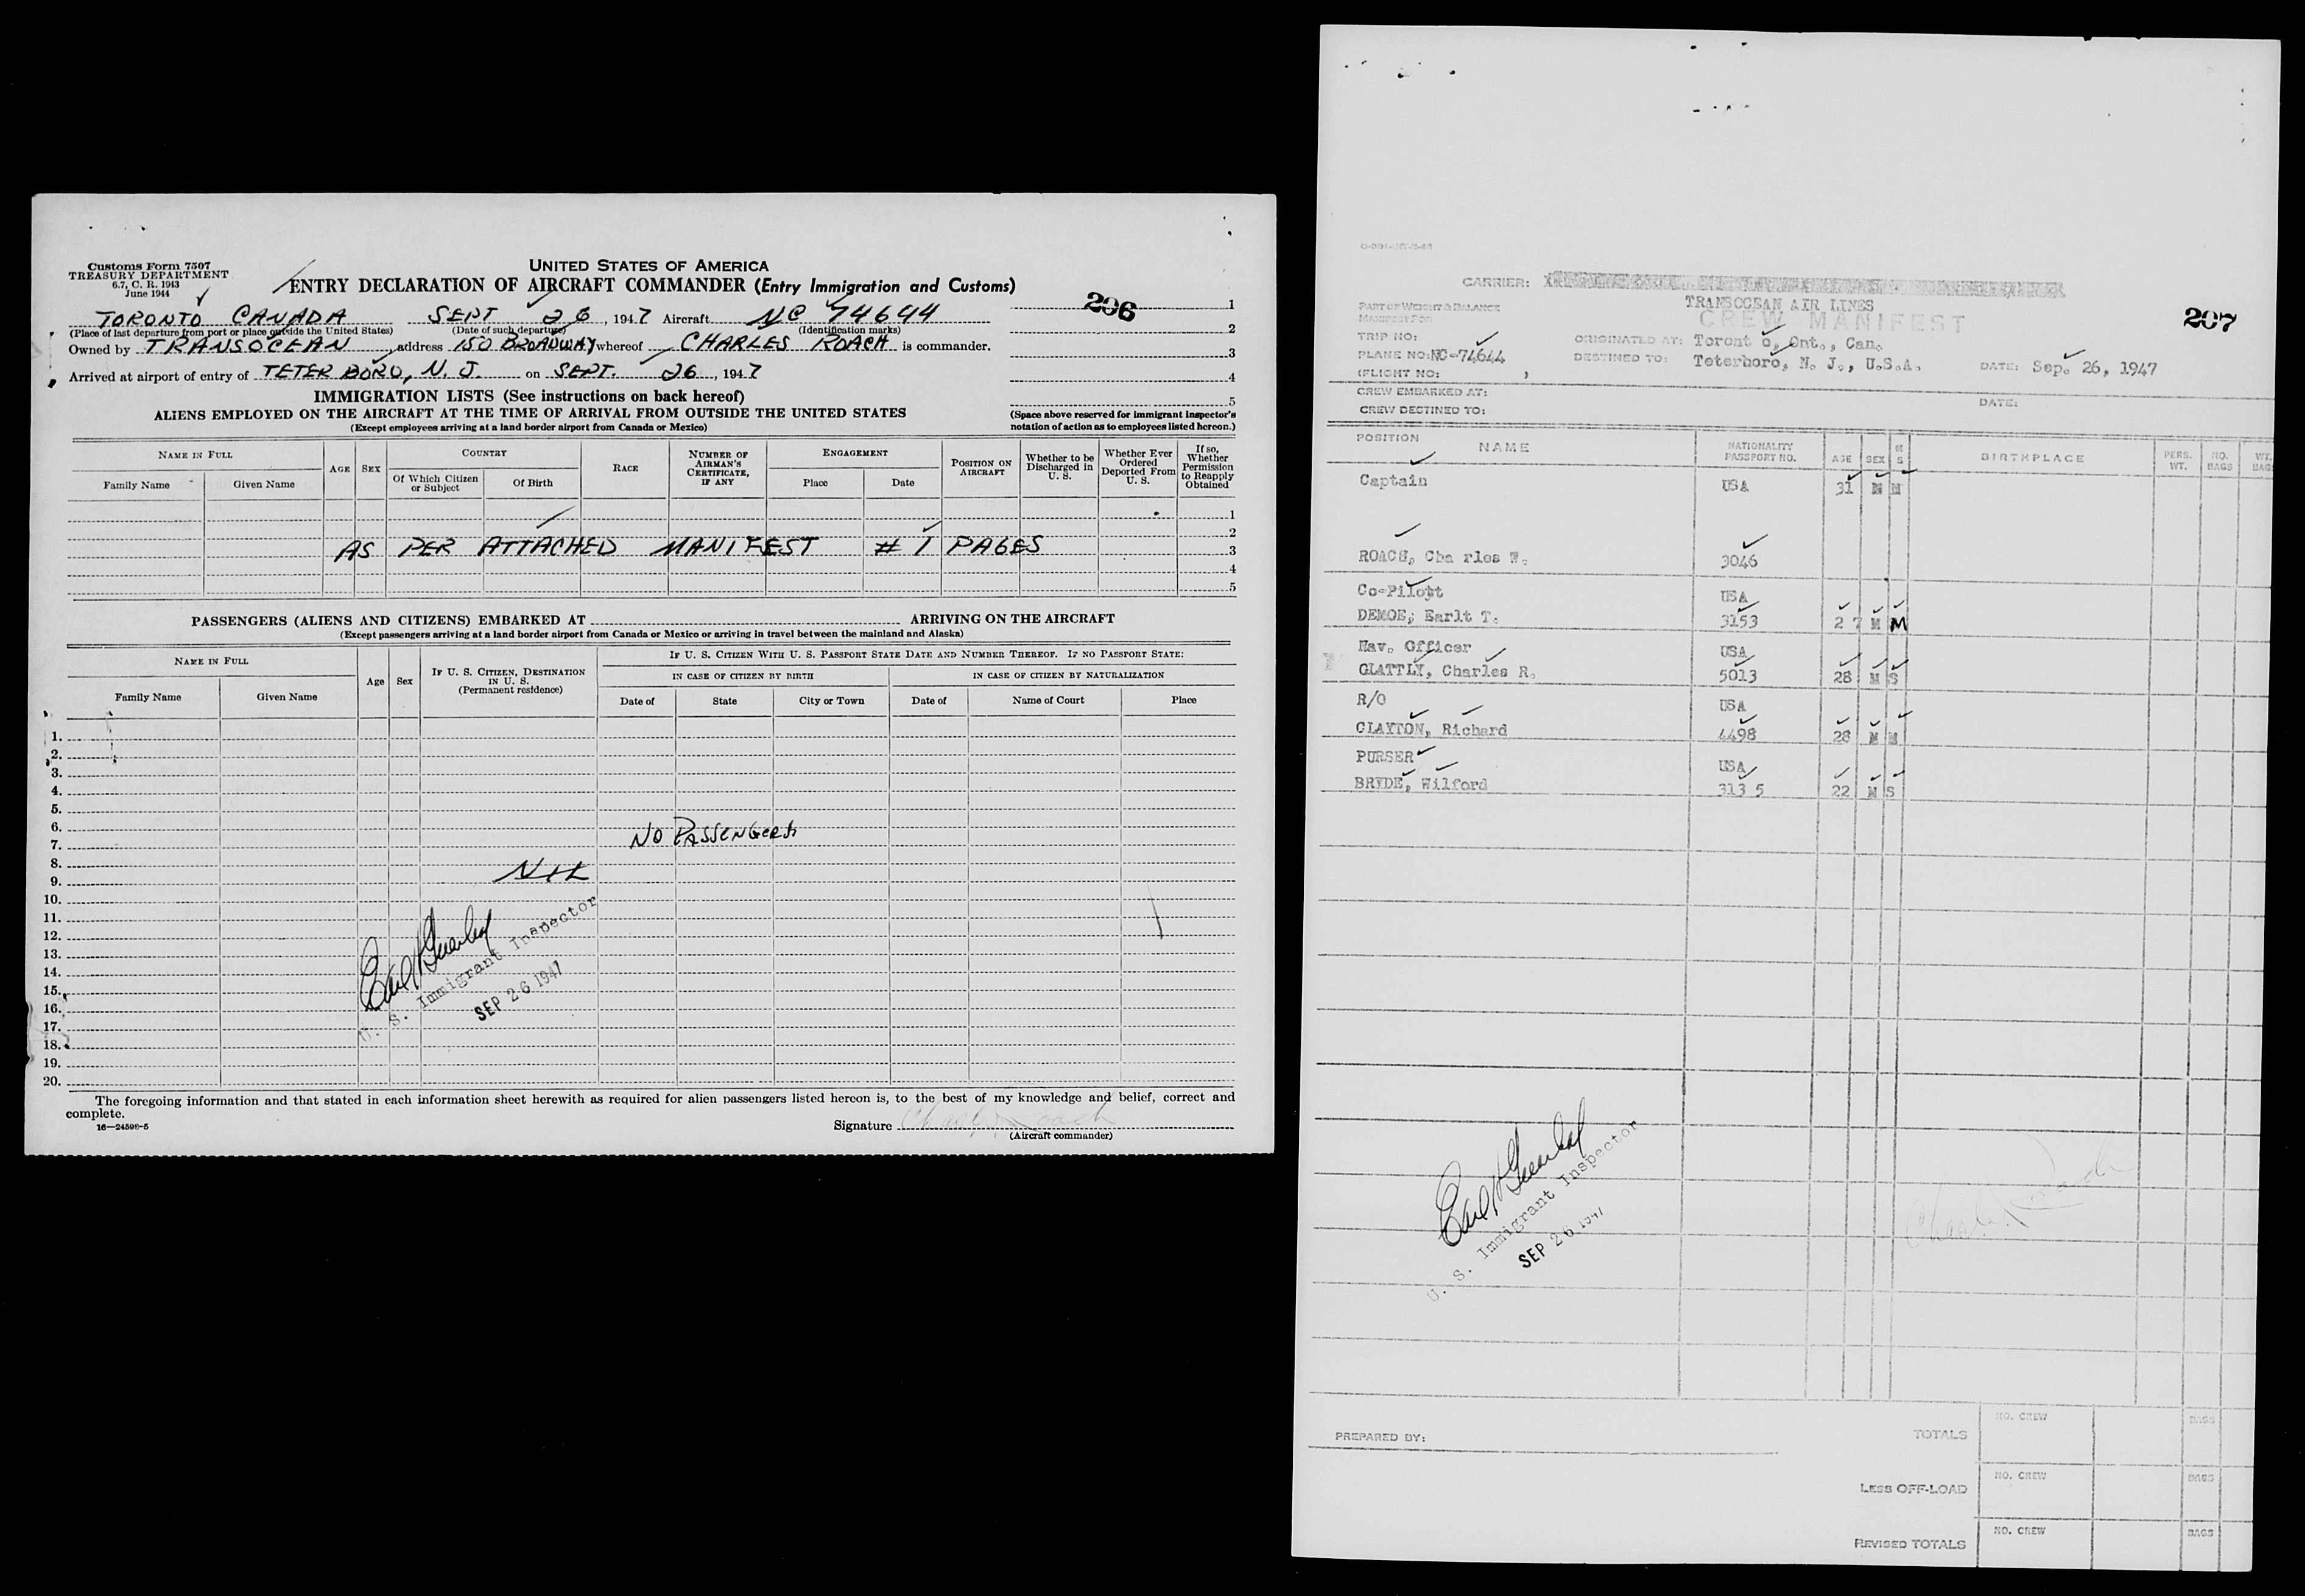 Customs Form 7507
TREASURY DEPARTMENT
6.7, C. R. 1943
June 1944
UNITED STATES OF AMERICA
ENTRY DECLARATION OF AIRCRAFT COMMANDER (Entry Immigration and Customs)
206
1
2
3
4
5
TORONTO CANADA SEPT 26, 1947 Aircraft NC 74644
(Place of last departure from port or place outside the United States) (Date of such departure) (Identification marks)
Owned by TRANSOCEAN, address 150 BROADWAY whereof CHARLES ROACH is commander.
Arrived at airport of entry of TETERBORO, N. J. on SEPT. 26, 1947
IMMIGRATION LISTS (See instructions on back hereof)
ALIENS EMPLOYED ON THE AIRCRAFT AT THE TIME OF ARRIVAL FROM OUTSIDE THE UNITED STATES
(Except employees arriving at a land border airport from Canada or Mexico)
(Space above reserved for immigrant inspector's
notation of action as to employees listed hereon.)
NAME IN FULL
Family Name Given Name
AGE SEX
COUNTRY
Of Which Citizen or Subject Of Birth
RACE
NUMBER OF AIRMAN'S CERTIFICATE, IF ANY
ENGAGEMENT
Place Date
POSITION ON AIRCRAFT
Whether to be Discharged in U. S.
Whether Ever Ordered Deported From U. S.
If so, Whether Permission to Reapply Obtained
1
2
AS PER ATTACHED MANIFEST # 1 PAGES 3
4
5
PASSENGERS (ALIENS AND CITIZENS) EMBARKED AT ARRIVING ON THE AIRCRAFT
(Except passengers arriving at a land border airport from Canada or Mexico or arriving in travel between the mainland and Alaska)
NAME IN FULL
Family Name Given Name
Age Sex
IF U. S. CITIZEN, DESTINATION IN U. S.
(Permanent residence)
IF U. S. CITIZEN WITH U. S. PASSPORT STATE DATE AND NUMBER THEREOF. IF NO PASSPORT STATE:
IN CASE OF CITIZEN BY BIRTH IN CASE OF CITIZEN BY NATURALIZATION
Date of State City or Town Date of Name of Court Place
1.
2.
3.
4.
5.
6.
7. NO PASSENGERS
8.
9. NIL
10.
11.
12.
13.
14.
15.
16.
17.
18.
19.
20.
U. S. Immigrant Inspector
SEP 26 1947
The foregoing information and that stated in each information sheet herewith as required for alien passengers listed hereon is, to the best of my knowledge and belief, correct and
complete.
16—24598-5
Signature Charles Roach
(Aircraft commander)
CARRIER:
TRANSOCEAN AIR LINES
PART OF WEIGHT & BALANCE
MANIFEST FOR
CREW MANIFEST
207
TRIP NO: ORIGINATED AT: Toront o, Ont., Can.
PLANE NO: NC-74644 DESTINED TO: Teterboro, N. J., U.S.A. DATE: Sep. 26, 1947
(FLIGHT NO:
CREW EMBARKED AT: DATE:
CREW DESTINED TO:
POSITION NAME NATIONALITY PASSPORT NO. AGE SEX M S BIRTHPLACE PERS. WT. NO. BAGS WT. BAGS
Captain USA 31 M M
ROACH, Cha rles W. 3046
Co-Pilott USA
DEMOE, Earlt T. 3153 2 7 M M
Nav. Officer USA
GLATTLY, Charles R. 5013 28 M S
R/O USA
CLAYTON, Richard 4498 28 M M
PURSER USA
BRYDE, Wilford 313 5 22 M S
U. S. Immigrant Inspector
SEP 26 1947
PREPARED BY:
TOTALS NO. CREW BAGS
LESS OFF-LOAD NO. CREW BAGS
REVISED TOTALS NO. CREW BAGS